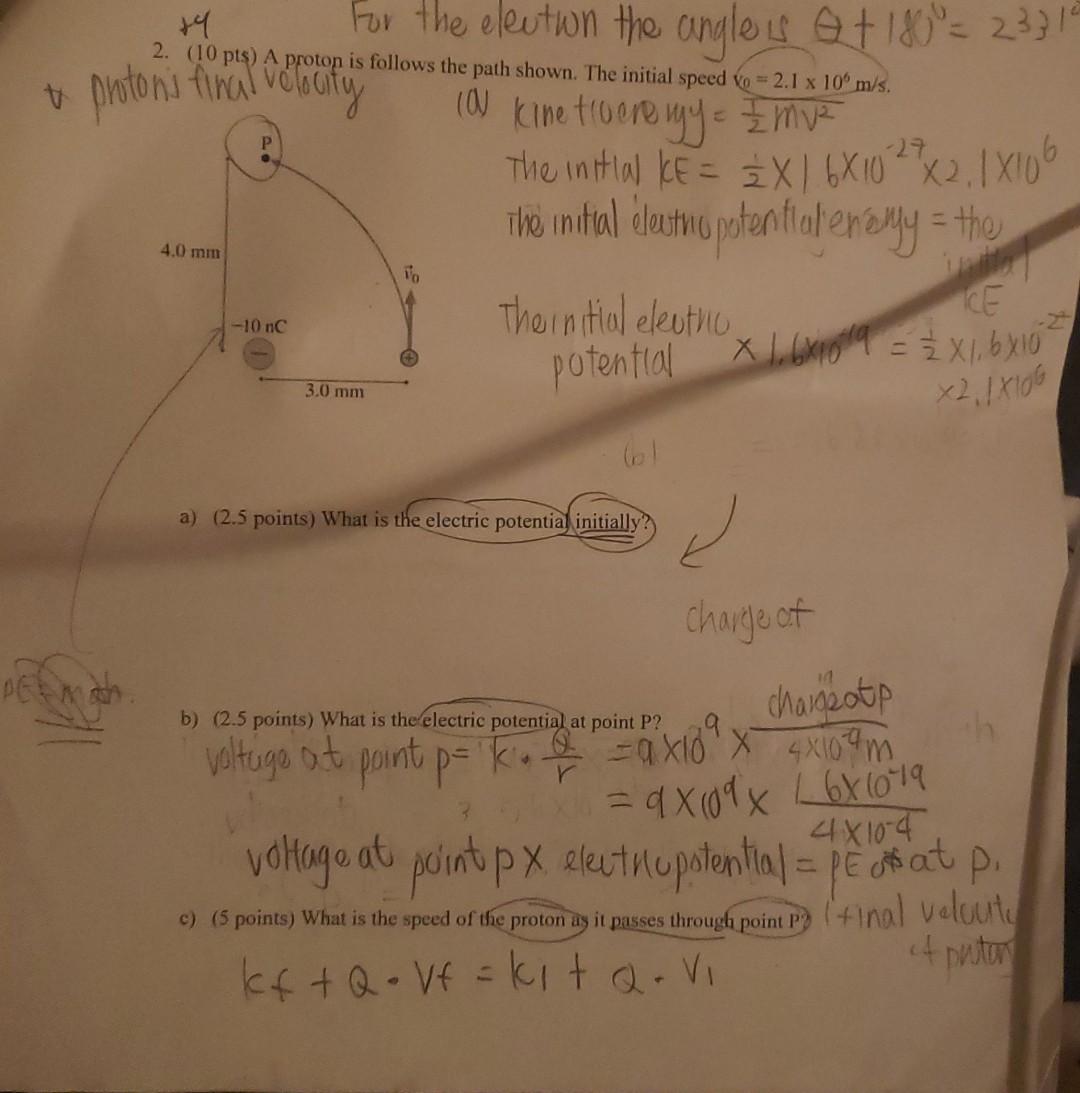 +9
For the electron the angle is θ + 180° = 233.1°
2. (10 pts) A proton is follows the path shown. The initial speed v₀ = 2.1 x 10⁶ m/s.
proton's final velocity
(a) Kinetic energy = ½mv²
P
The initial KE = ½ × 1.6×10⁻²⁷ × 2.1×10⁶
The initial electric potential energy = the
initial
KE
4.0 mm
v⃗₀
The initial electric
potential × 1.6×10⁻¹⁹ = ½ × 1.6×10⁻²⁷
× 2.1×10⁶
−10 nC
−
+
3.0 mm
(b)
a) (2.5 points) What is the electric potential initially?
charge of
b) (2.5 points) What is the electric potential at point P?
charge at P
voltage at point p = k · Q/r = 9×10⁹ × 4×10⁻⁴m
= 9×10⁹ × 1.6×10⁻¹⁹
4×10⁻⁴
voltage at point p × electric potential = PE at p.
c) (5 points) What is the speed of the proton as it passes through point P?
(final velocity
of proton
Kf + Q · Vf = Ki + Q · Vi